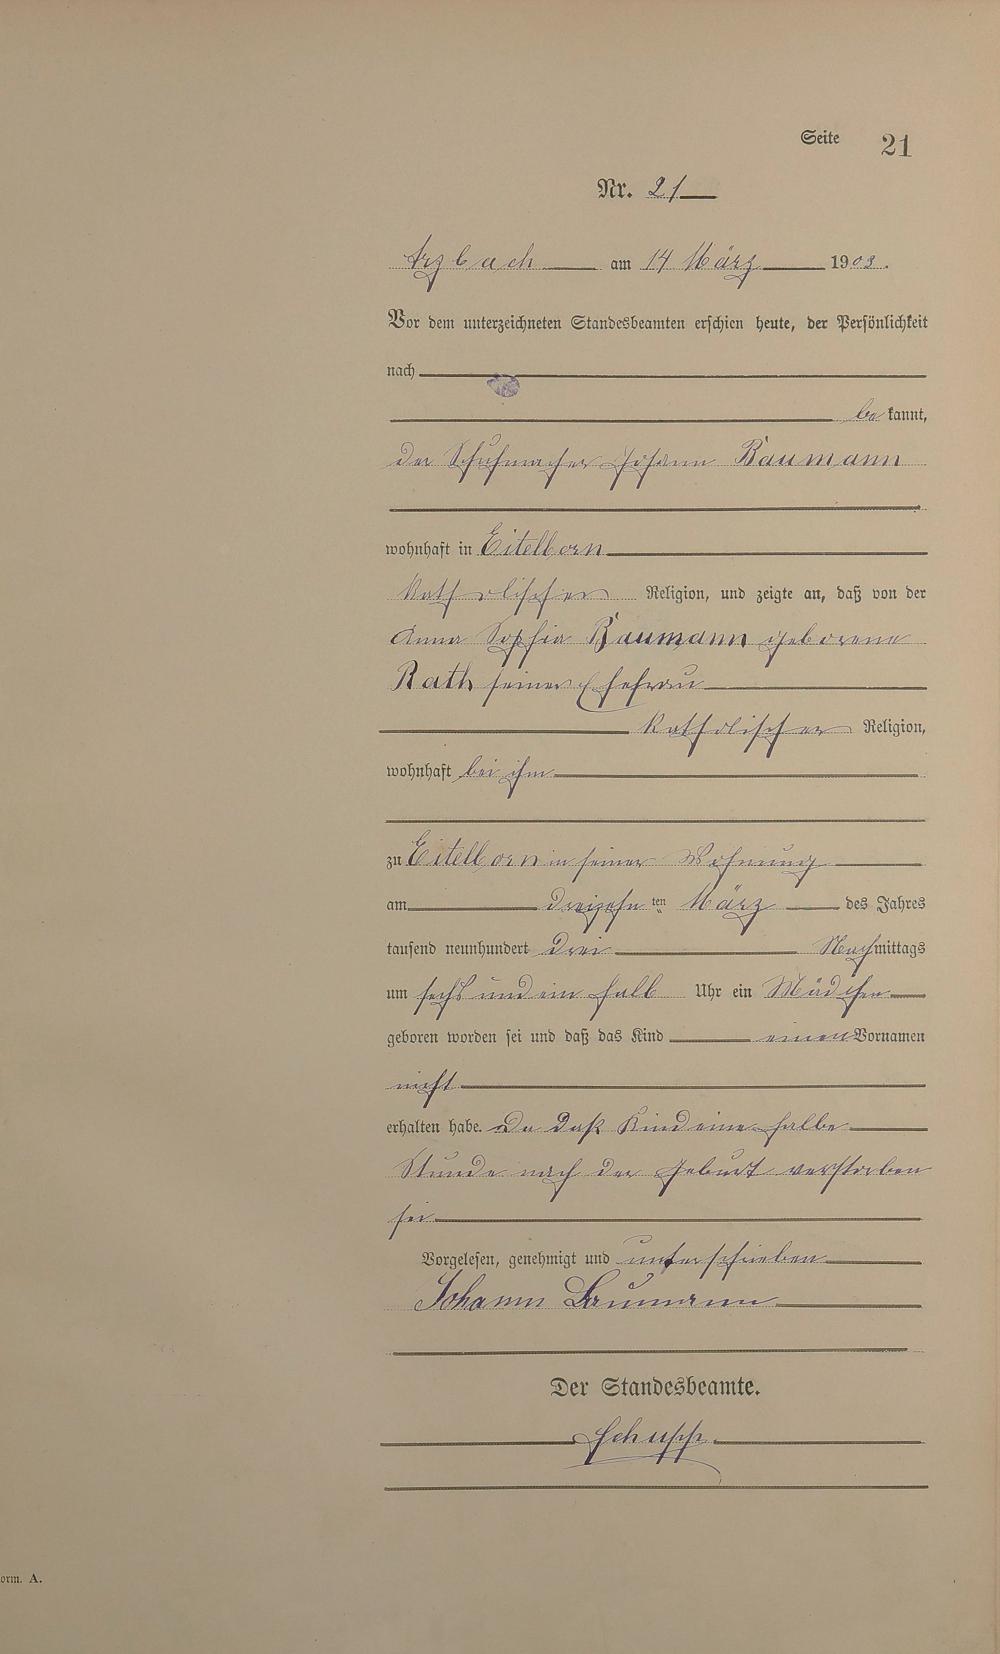 Seite 21
Nr. 21
Arzbach am 14 März 1903.
Vor dem unterzeichneten Standesbeamten erschien heute, der Persönlichkeit
nach
be kannt,
der Schuhmacher Johann Baumann
wohnhaft in Eitelborn
katholischer Religion, und zeigte an, daß von der
Anna Sophia Baumann geborene
Rath seiner Ehefrau
katholischer Religion,
wohnhaft bei ihm
zu Eitelborn in seiner Wohnung
am dreizehn ten März des Jahres
tausend neunhundert drei Nachmittags
um sechs und ein halb Uhr ein Mädchen
geboren worden sei und daß das Kind einen Vornamen
nicht
erhalten habe. Da daß Kind eine halbe
Stunde nach der Geburt verstorben
sei
Vorgelesen, genehmigt und unterschrieben
Johann Baumann
Der Standesbeamte.
Schupp
orm. A.